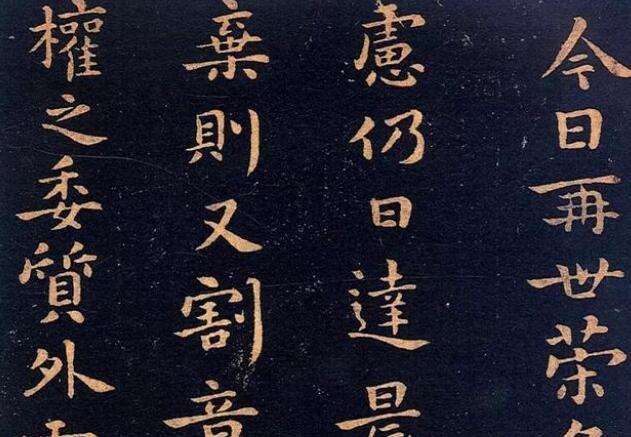 今日再世荣
慮仍日達
棄則又割
權之委質外